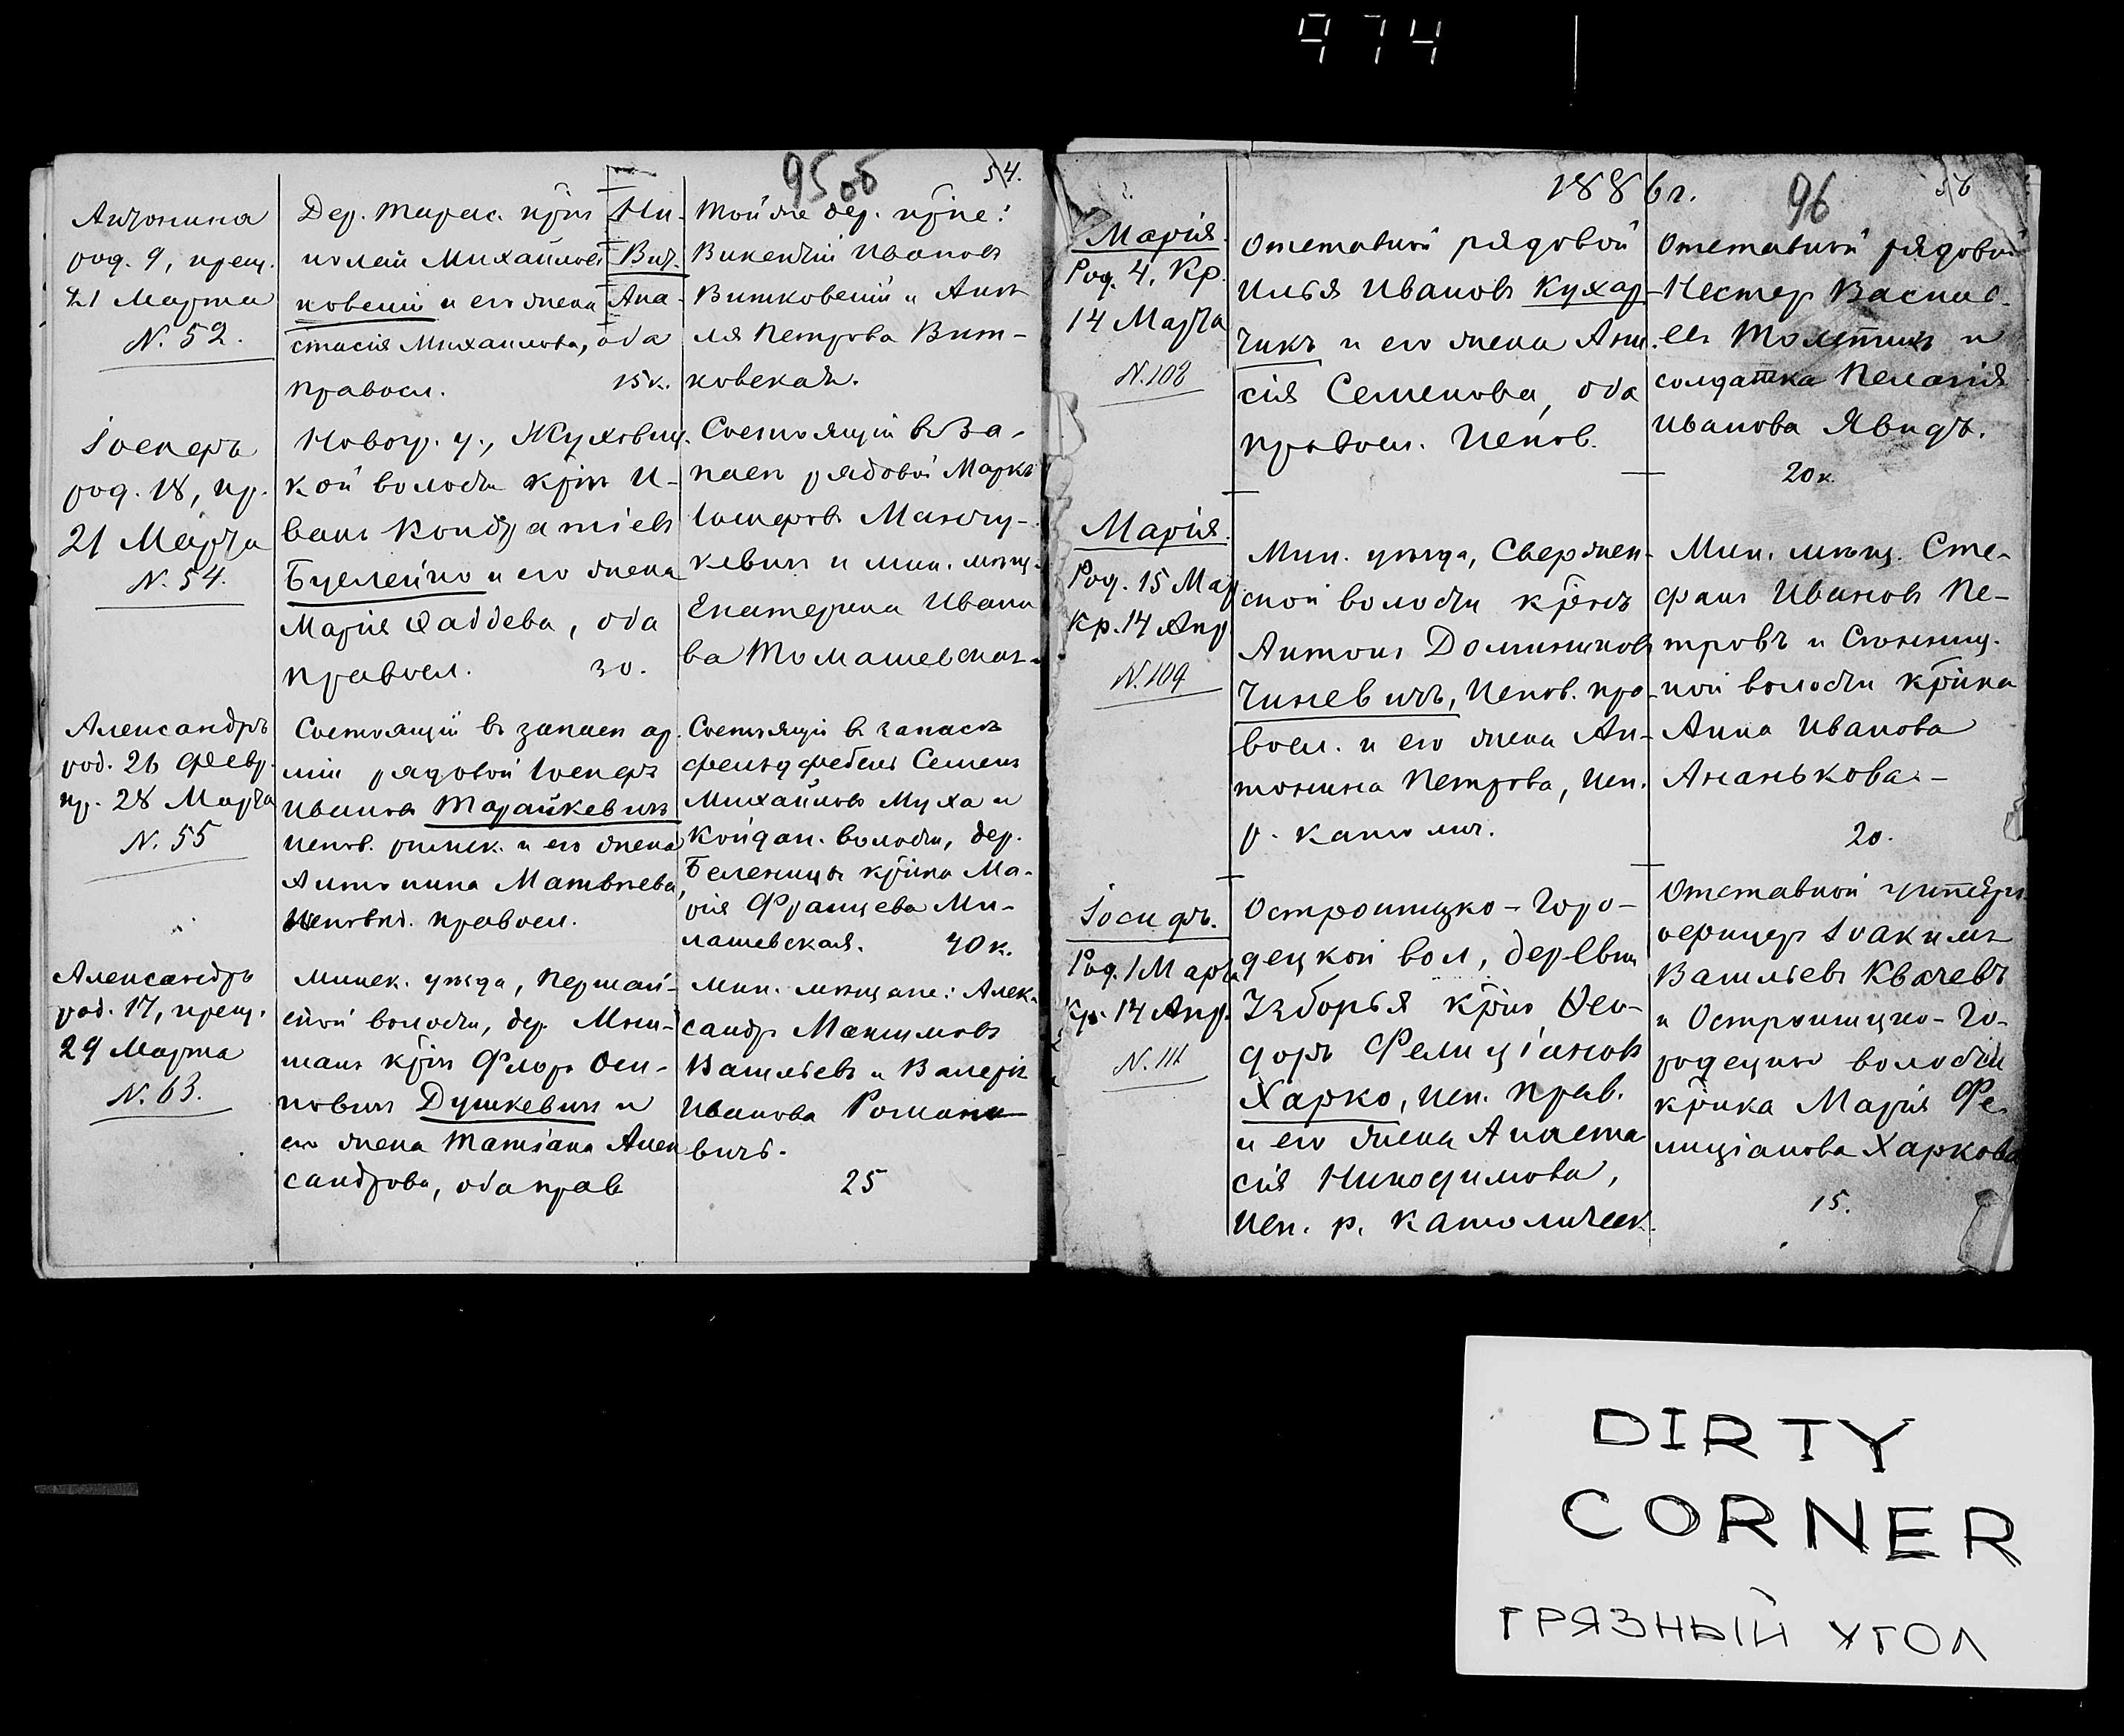 974
95об
54.
Антонина
род. 9, крещ.
21 Марта
N. 52.
Дер. Тарас. крн Ни-
колай Михайловъ Вит-
ковскій и его жена Ана-
стасія Михаилова, оба
правосл. 15 к.
Той же дер. крне:
Викентій Ивановъ
Витковскій и
Петрова Вит-
ковская.
Іосифъ
род. 18, кр.
21 Марта
N. 54.
Новогр. у., Жуховиц-
кой волости крн И-
ванъ Кондратіевъ
и его жена
Марія Фаддева, оба
правосл. 30.
Состоящій въ За-
пасѣ рядовой Маркъ
и мин. мѣщ.
Екатерина Ивано
ва Томашевская.
Александръ
род. 26 Февр.
кр. 28 Марта
N. 55
Состоящій въ запасѣ ар
міи рядовой Іосифъ
Ивановъ Тарайкевичъ
испов. римск. и его жена
Антонина Матвѣева,
правосл.
Состоящій в запасѣ
фельдфебель Семенъ
Михайловъ Муха и
Койдан. волости, дер.
крнка Ма-
рія Францева Ми-
лашевская. 40 к.
Александръ
род. 17, крещ.
29 Марта
N. 63.
Минск. уѣзда, Першай-
ской волости, дер.
крн Флоръ Оси-
повичъ Душкевичъ и
его жена Татіана Алек
сандрова, оба прав
Мин. мѣщане: Алек-
сандръ Максимовъ
Васильевъ и Валерія
Иванова Романо
вичъ.
25
1886 г.
96
56
Марія.
Род. 4, Кр.
14 Марта
N. 108
Отставной рядовой
Илья Ивановъ Кухар-
чикъ и его жена Ани-
сія Семенова, оба
правосл. испов.
Отставной рядовой
Нестеръ Васил-
евъ и
солдатка Пелагія
Иванова Явидъ.
20 к.
Марія.
Род. 15 Мар
Кр. 14 Апр.
N. 109
Мин. уѣзда, Свержен-
ской волости крнъ
Антонъ Доминиковъ
Чиневичъ, испов. пра-
восл. и его жена Ан-
тонина Петрова, исп.
р. католич.
Мин. мѣщ. Сте-
фанъ Ивановъ Пе-
тровъ и
кой волости крнка
Анна Иванова
Ананькова-
20.
Іосифъ.
Род. 1 Марта
Кр. 14 Апр.
N. 111
Острошицко-Горо-
децкой вол, деревни
крнъ Ѳео-
доръ Фелиціановъ
Харко, исп. прав.
и его жена Анаста
сія Никодимова,
исп. р. католическ.
Отставной унтеръ
офицеръ Іоакимъ
Васильевъ Квачевъ
и Острошицко-Го-
родецкой волости
крнка Марія Фе-
лиціанова Харкова
15.
DIRTY
CORNER
ГРЯЗНЫЙ УГОЛ